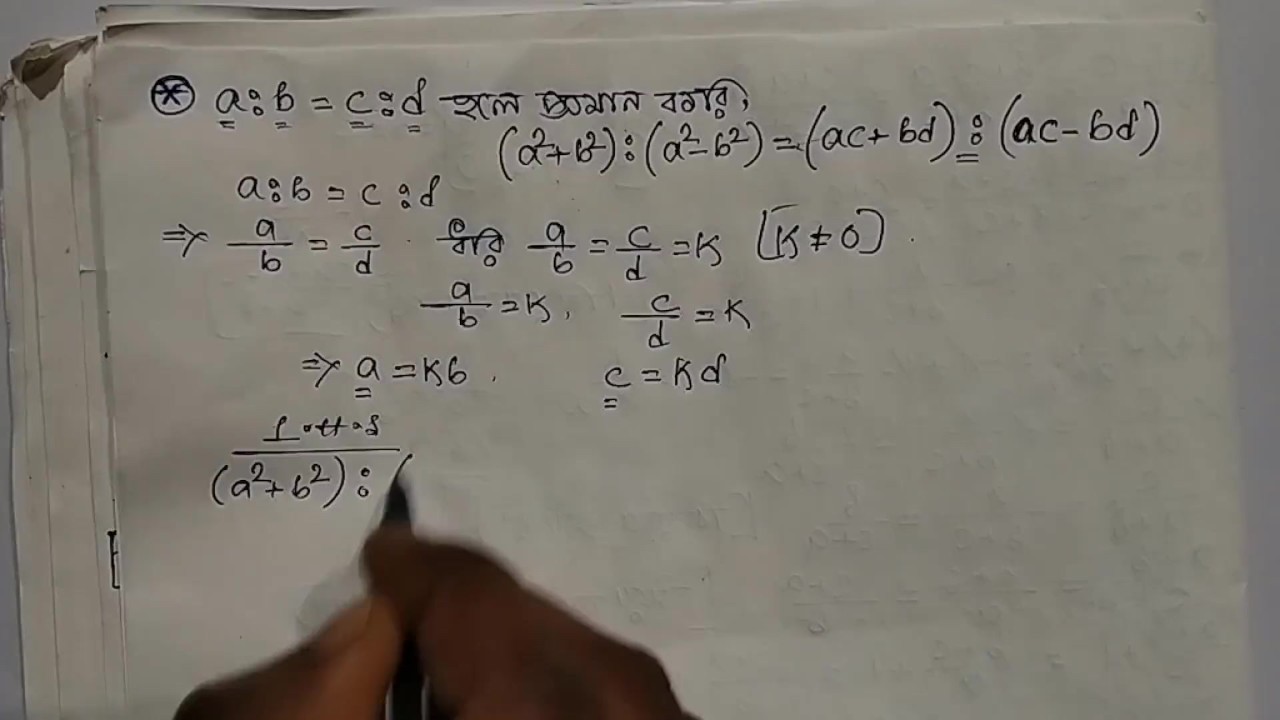 ⊛ a:b = c:d হলে প্রমাণ করি,
(a²+b²):(a²-b²)=(ac+bd):(ac-bd)
a:b = c:d
⇒ a/b = c/d . ধরি a/b = c/d = K [K≠0] .
a/b = K, c/d = K
⇒ a = Kb . c = Kd
L.H.S
(a²+b²):(